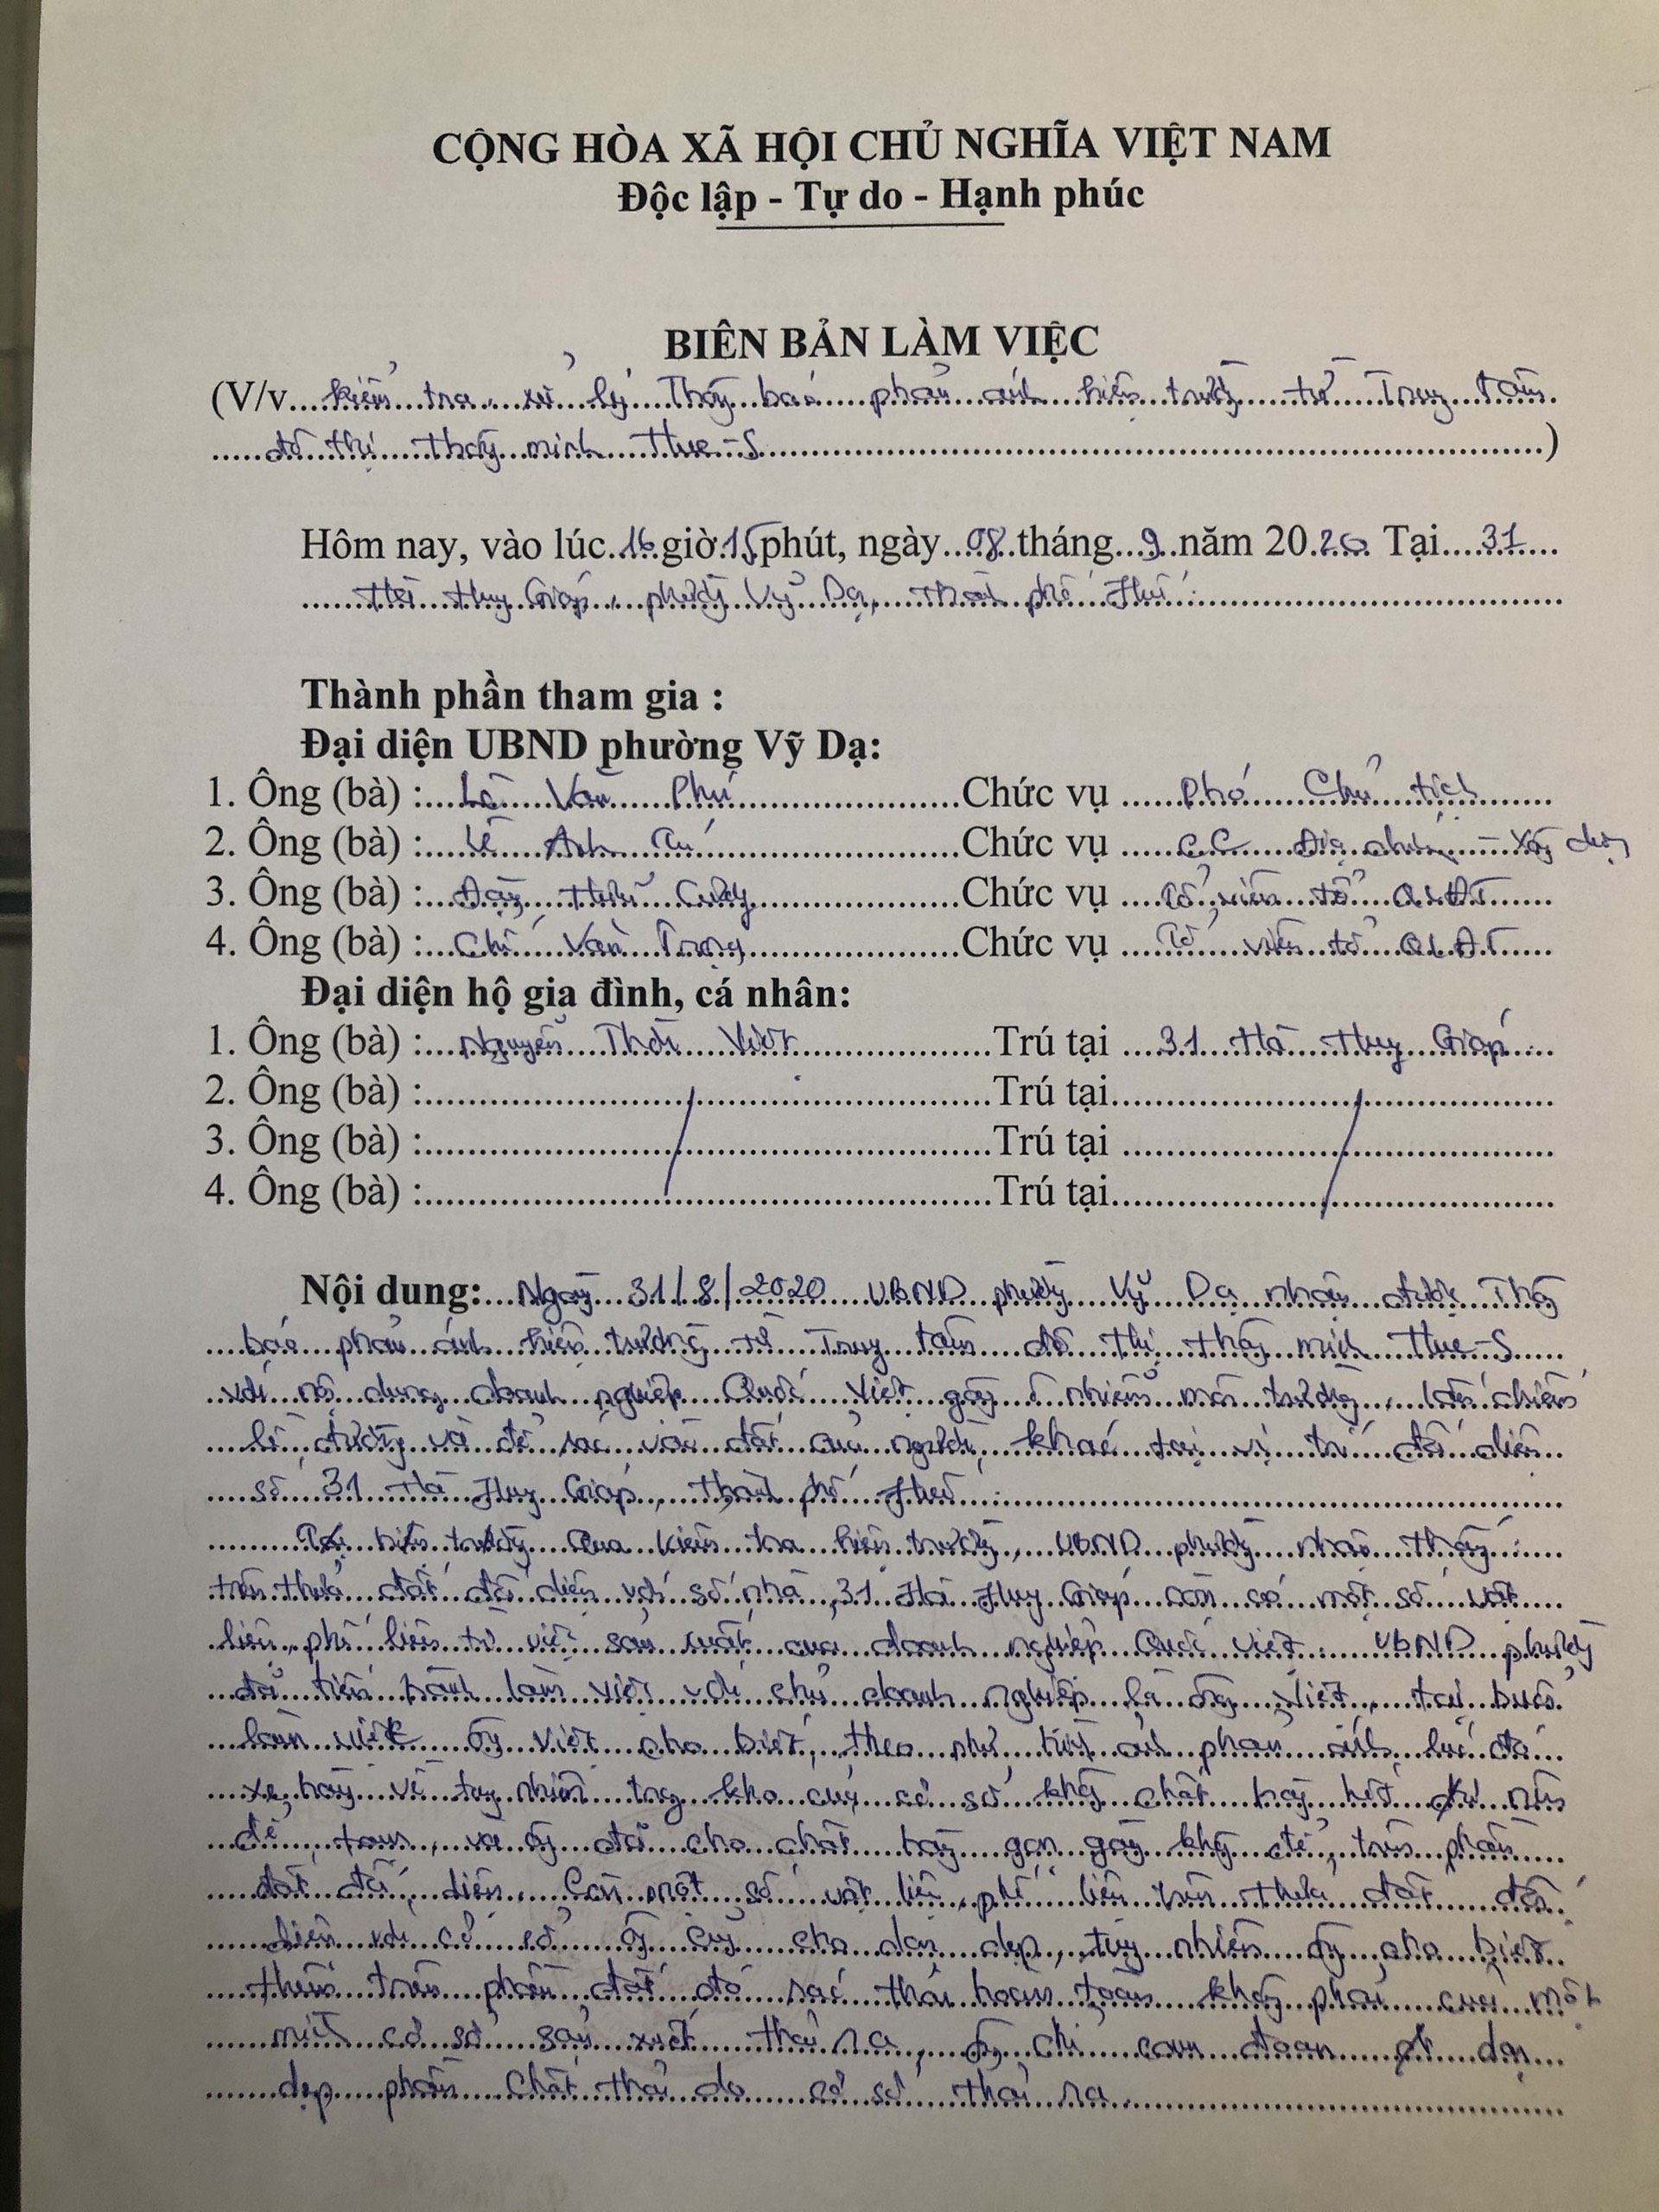 CỘNG HÒA XÃ HỘI CHỦ NGHĨA VIỆT NAM
Độc lập - Tự do - Hạnh phúc
BIÊN BẢN LÀM VIỆC
(V/v kiểm tra, xử lý Thông báo phản ánh hiện trường từ Trung tâm
đô thị thông minh Hue-S)
Hôm nay, vào lúc 16 giờ 15 phút, ngày 08 tháng 9 năm 2020 Tại 31
Hà Huy Giáp, phường Vỹ Dạ, thành phố Huế.
Thành phần tham gia :
Đại diện UBND phường Vỹ Dạ:
1. Ông (bà) : Lê Văn Phú Chức vụ Phó Chủ tịch
2. Ông (bà) : Lê Anh Chức vụ C.C Địa chính - Xây dựng
3. Ông (bà) : Đặng Hữu Cường Chức vụ Tổ viên tổ QLĐT
4. Ông (bà) : Văn Trọng Chức vụ Tổ viên tổ QLĐT
Đại diện hộ gia đình, cá nhân:
1. Ông (bà) : Nguyễn Việt Trú tại 31 Hà Huy Giáp
2. Ông (bà) : Trú tại
3. Ông (bà) : Trú tại
4. Ông (bà) : Trú tại
Nội dung: Ngày 31/8/2020 UBND phường Vỹ Dạ nhận được Thông
báo phản ánh hiện trường từ Trung tâm đô thị thông minh Hue-S
với nội dung doanh nghiệp Quốc Việt gây ô nhiễm môi trường, lấn chiếm
lề đường và đổ rác vào đất của người khác tại vị trí đối diện
số 31 Hà Huy Giáp, thành phố Huế.
Qua kiểm tra hiện trường, UBND phường nhận thấy:
trên thửa đất đối diện với số nhà 31 Hà Huy Giáp còn có một số vật
liệu, phế liệu từ việc sản xuất của doanh nghiệp Quốc Việt. UBND phường
đã tiến hành làm việc với chủ doanh nghiệp là ông Việt, tại buổi
làm việc ông Việt cho biết, theo như hình ảnh phản ánh lúc đó
xe hàng về tuy nhiên trong kho của cơ sở không chất hàng hết nên
để tạm, và ông đã cho chất hàng gọn gàng không để trên phần
đất đối diện. Còn một số vật liệu, phế liệu trên thửa đất đối
diện với cơ sở ông cũng cho dọn dẹp, tuy nhiên ông cho biết
thêm trên phần đất đó rác thải hoàn toàn không phải của một
mình cơ sở sản xuất thải ra, ông chỉ cam đoan dọn
dẹp phần chất thải do cơ sở thải ra.